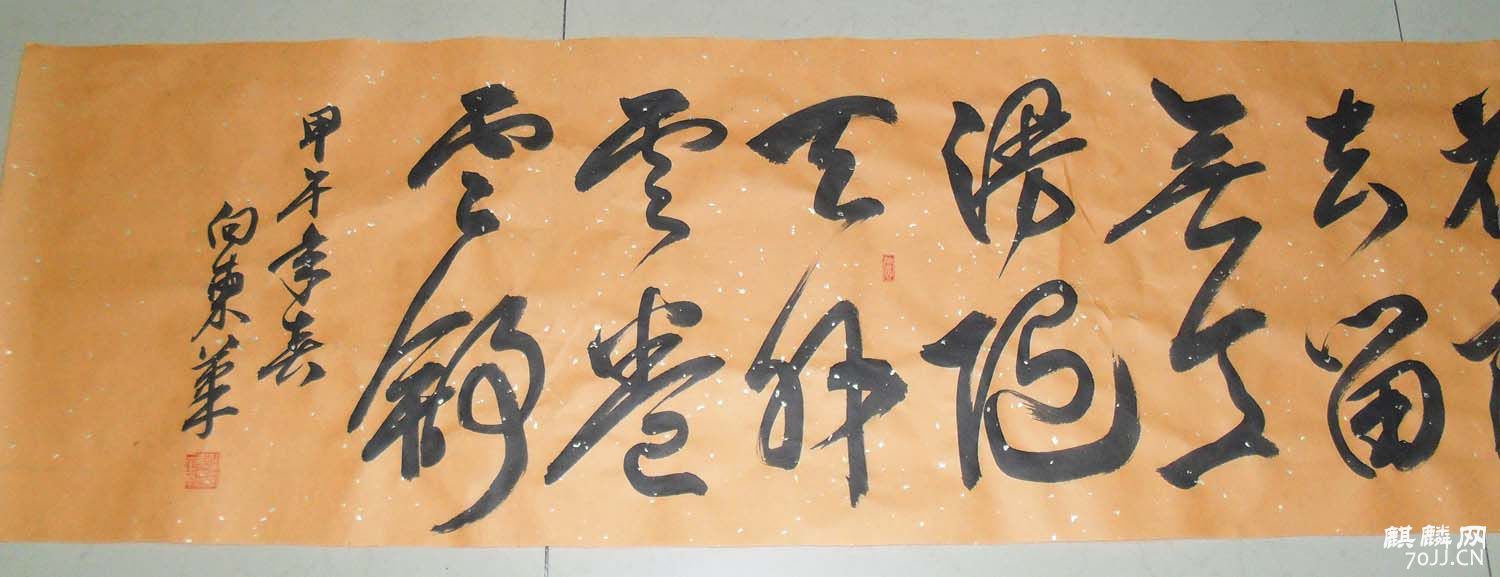 去留
无意
漫随
天外
雲卷
雲舒
甲午年春
向東筆
麒麟网
70JJ.CN